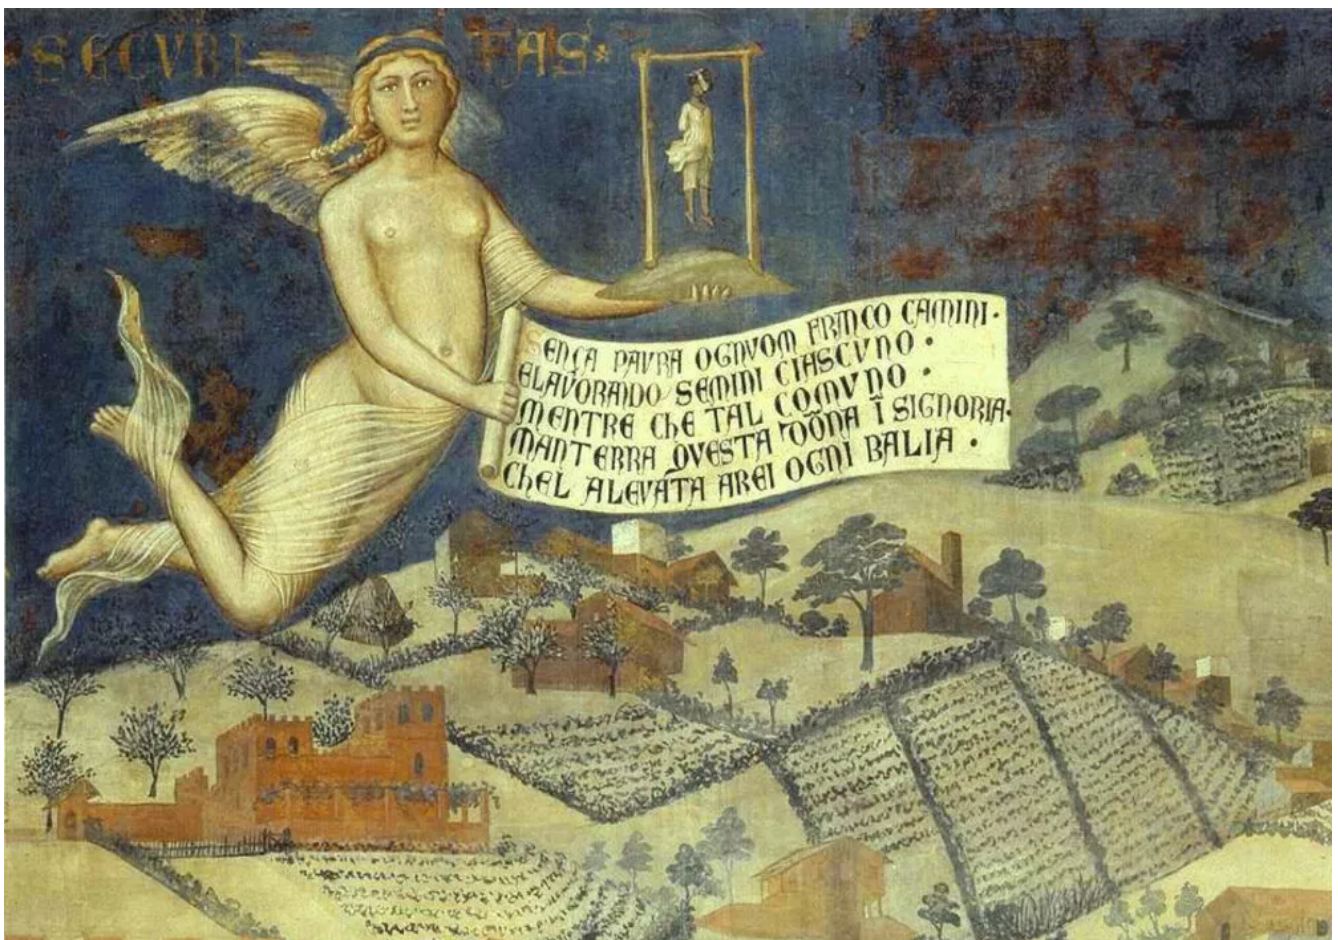 SECVRI TAS
SENÇA PAVRA OGNVOM FRANCO CAMINI·
ELAVORANDO SEMINI CIASCVNO·
MENTRE CHE TAL COMVNO·
MANTERRA QVESTA DŌNA Ī SIGNORIA·
CHEL ALEVATA AREI OGNI BALIA·